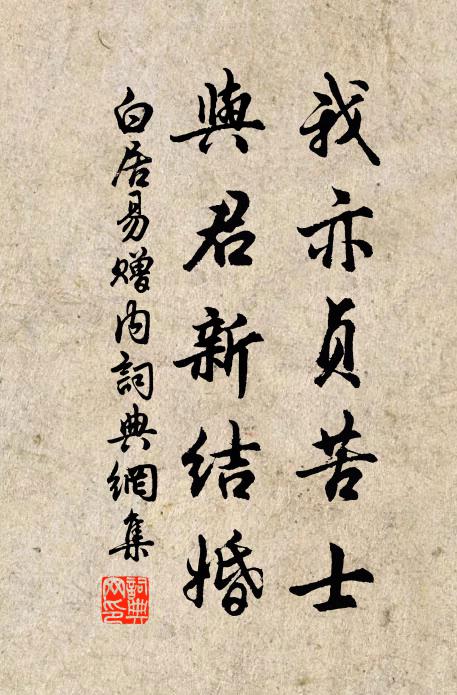 我亦貞苦士
與君新結婚
白居易贈內詞典網集
詞典網印